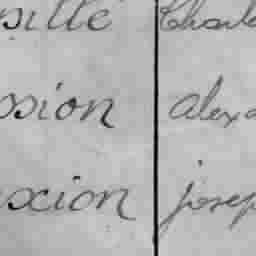 sille Charle
ssion alexa
xcion josep